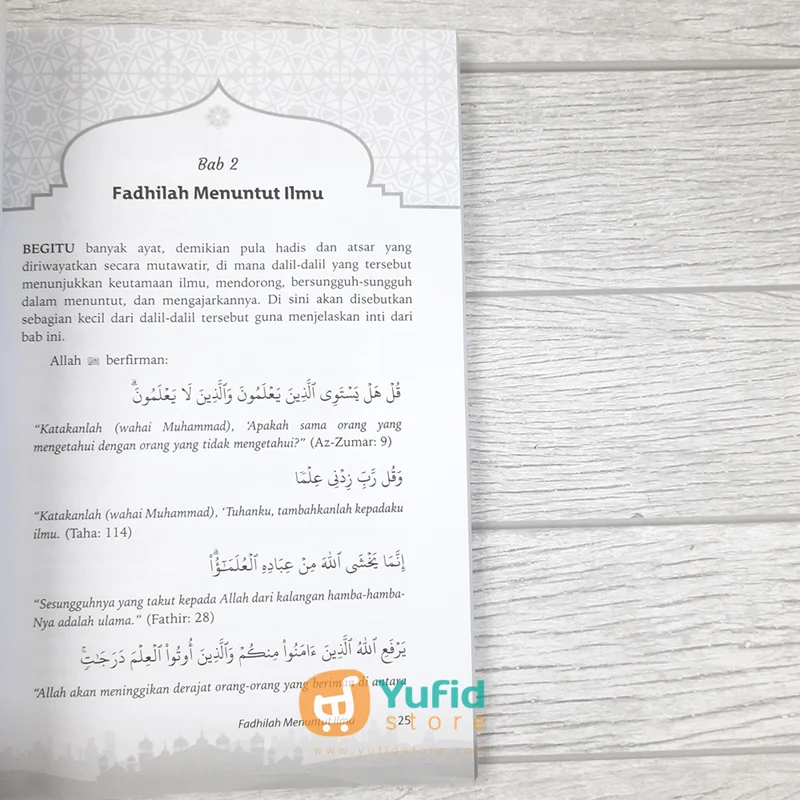 Bab 2
Fadhilah Menuntut Ilmu
BEGITU banyak ayat, demikian pula hadis dan atsar yang
diriwayatkan secara mutawatir, di mana dalil-dalil yang tersebut
menunjukkan keutamaan ilmu, mendorong, bersungguh-sungguh
dalam menuntut, dan mengajarkannya. Di sini akan disebutkan
sebagian kecil dari dalil-dalil tersebut guna menjelaskan inti dari
bab ini.
Allah ﷻ berfirman:
قُلْ هَلْ يَسْتَوِى ٱلَّذِينَ يَعْلَمُونَ وَٱلَّذِينَ لَا يَعْلَمُونَۗ
“Katakanlah (wahai Muhammad), ‘Apakah sama orang yang
mengetahui dengan orang yang tidak mengetahui?” (Az-Zumar: 9)
وَقُل رَّبِّ زِدْنِى عِلْمًا
“Katakanlah (wahai Muhammad), ‘Tuhanku, tambahkanlah kepadaku
ilmu. (Taha: 114)
إِنَّمَا يَخْشَى ٱللَّهَ مِنْ عِبَادِهِ ٱلْعُلَمَٰٓؤُا۟ۗ
“Sesungguhnya yang takut kepada Allah dari kalangan hamba-hamba-
Nya adalah ulama.” (Fathir: 28)
يَرْفَعِ ٱللَّهُ ٱلَّذِينَ ءَامَنُوا۟ مِنكُمْ وَٱلَّذِينَ أُوتُوا۟ ٱلْعِلْمَ دَرَجَٰتٍۚ
“Allah akan meninggikan derajat orang-orang yang beriman di antara
Fadhilah Menuntut Ilmu 25
Yufid
store
www.yufidstore.com